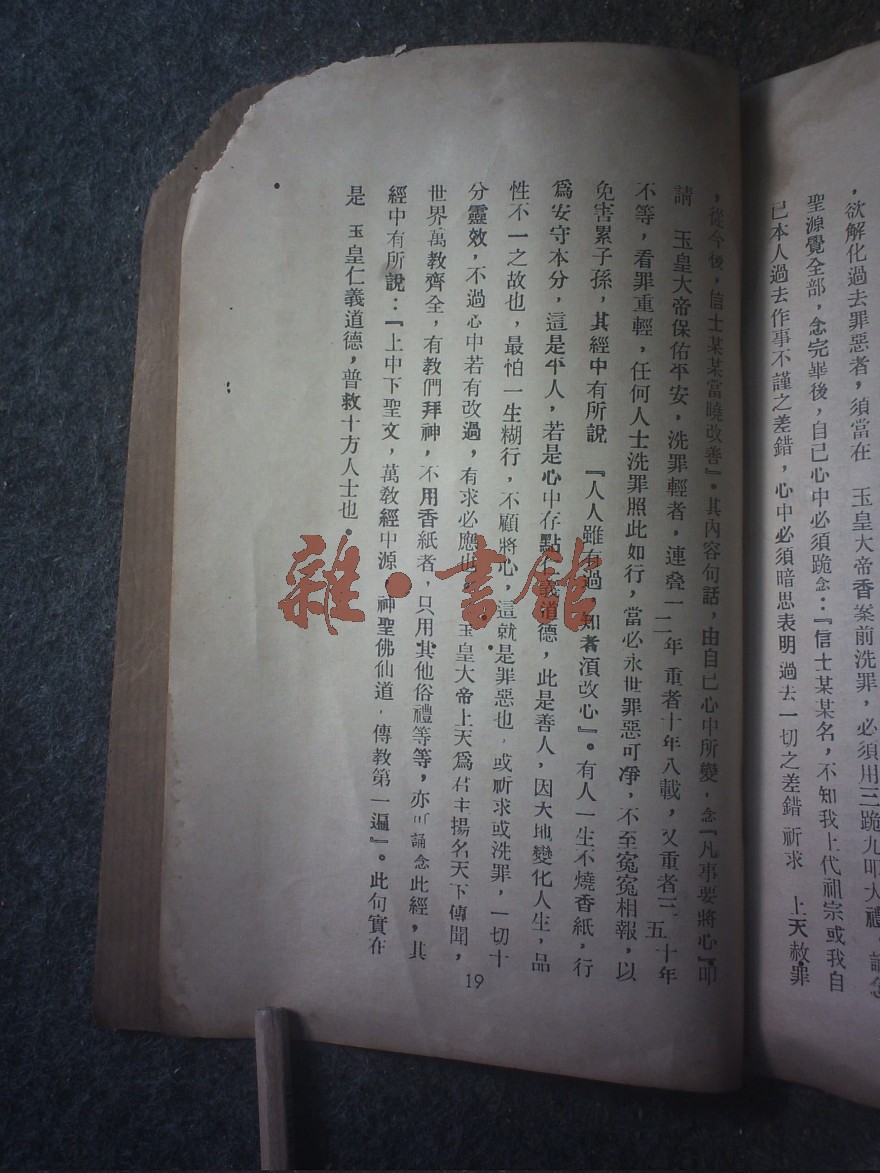 ，欲解化過去罪惡者，須當在　玉皇大帝香案前洗罪，必須用三跪九叩大禮，誦念
聖源覺全部，念完畢後，自己心中必須跪念：『信士某某名，不知我上代祖宗或我自
己本人過去作事不謹之差錯，心中必須暗思表明過去一切之差錯 祈求　上天赦罪
，從今後，信士某某當曉改善』。其內容句話，由自己心中所變，念『凡事要將心』叩
請　玉皇大帝保佑平安，洗罪輕者，連叠一二年 重者十年八載，又重者三、五十年
不等，看罪重輕，任何人士洗罪照此如行，當必永世罪惡可凈，不至寃寃相報，以
免害累子孫，其經中有所說　『人人雖有過 知者須改心』。有人一生不燒香紙，行
爲安守本分，這是平人，若是心中存點仁義道德，此是善人，因大地變化人生，品
性不一之故也，最怕一生糊行，不顧將心，這就是罪惡也，或祈求或洗罪，一切十
分靈效，不過心中若有改過，有求必應也，玉皇大帝上天爲君主揚名天下傳聞，
世界萬教齊全，有教們拜神，不用香紙者，只用其他俗禮等等，亦可誦念此經，其
經中有所說：『上中下聖文，萬教經中源，神聖佛仙道，傳教第一遍』。此句實在
是　玉皇仁義道德，普救十方人士也。
19
雜·書館